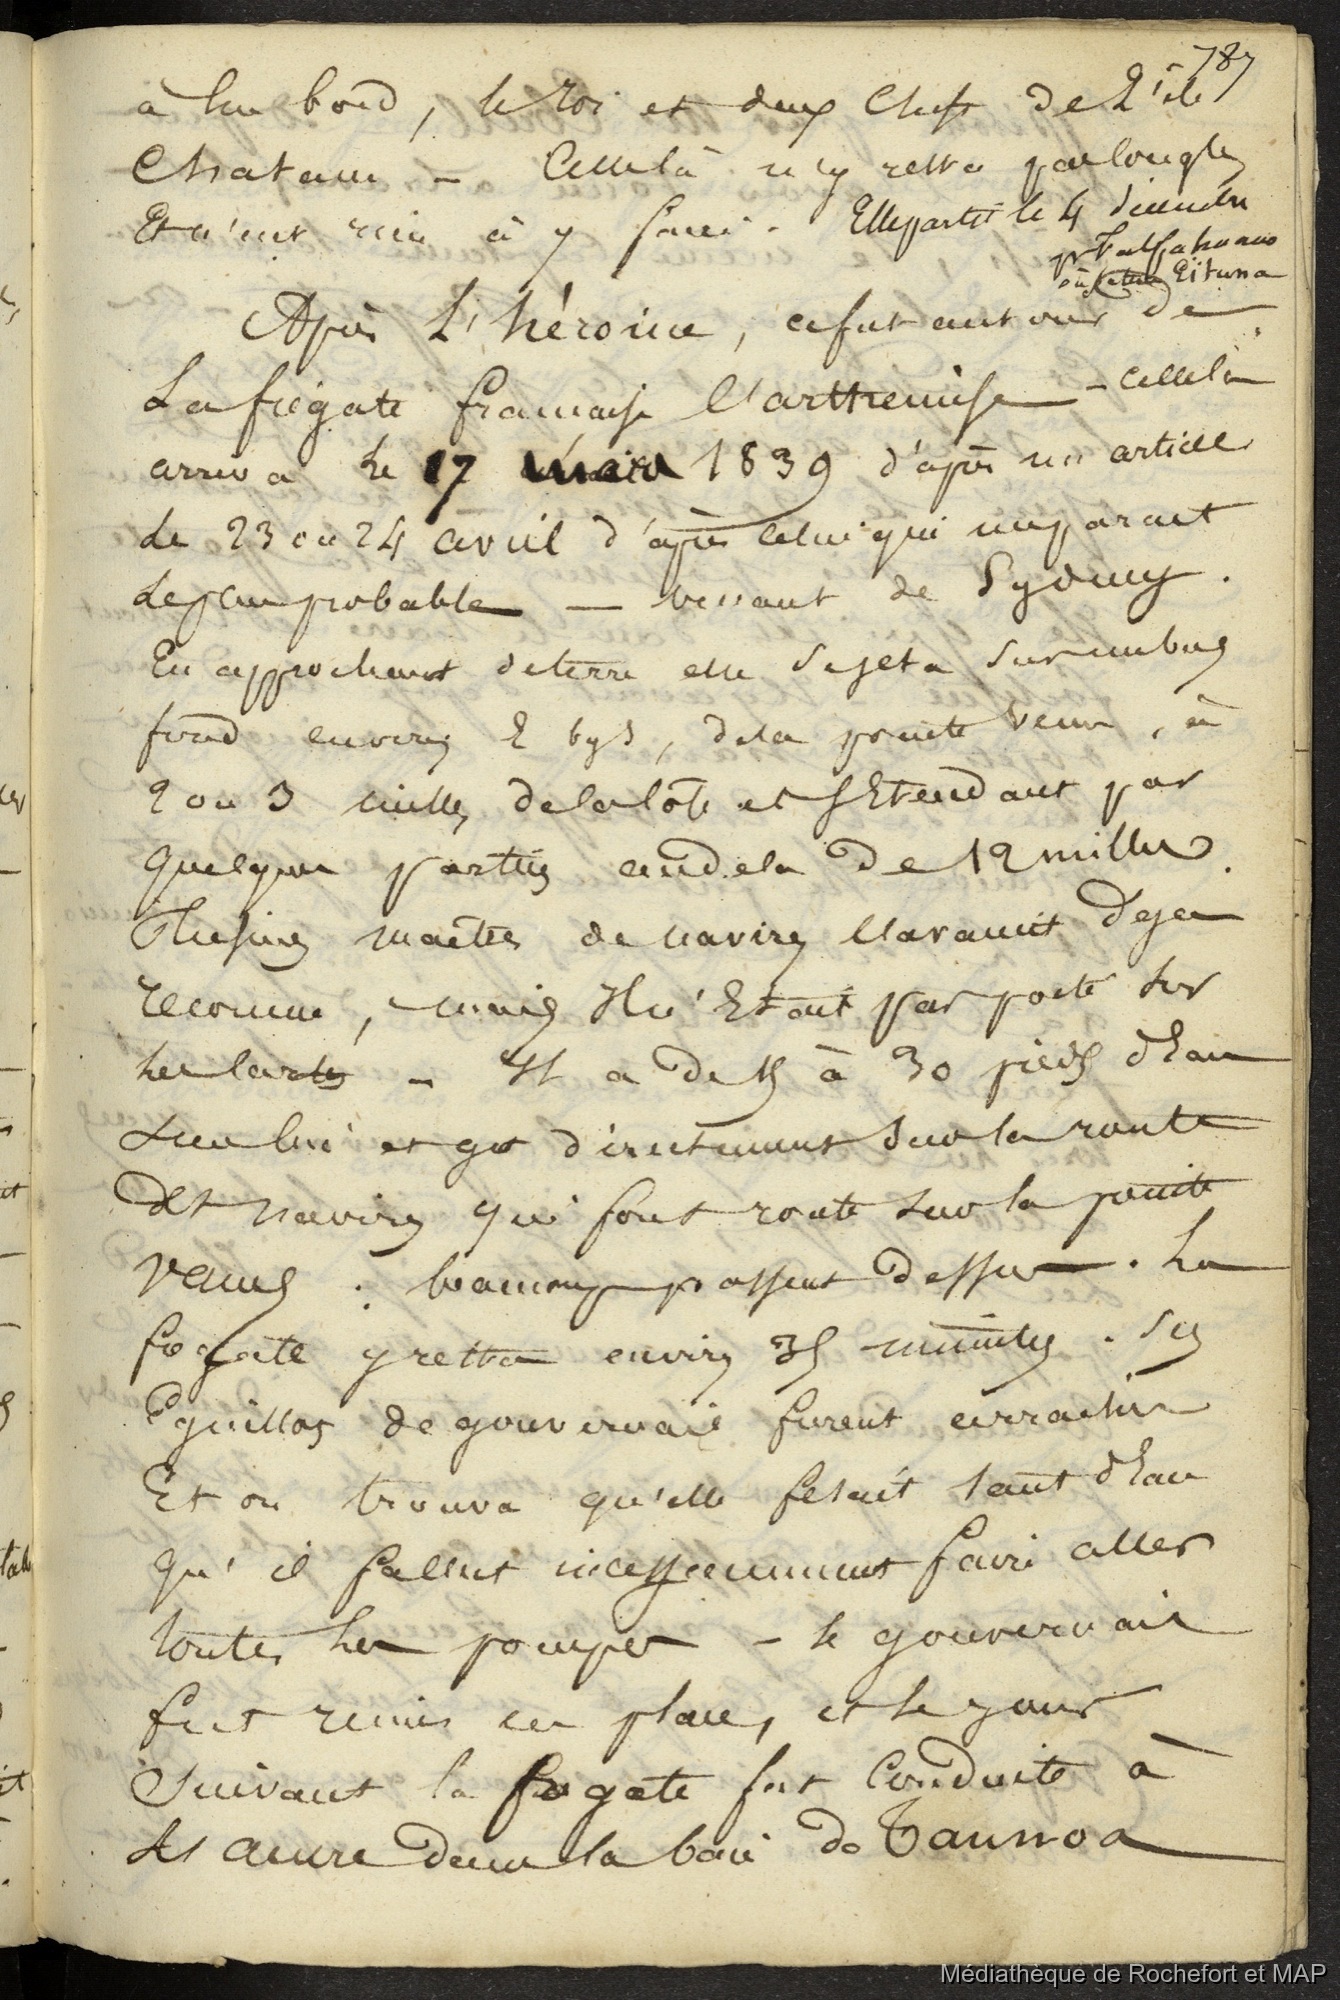 787
à son bord, le Roi et deux Chefs de L'ile
Chatam – Celle là n'y resta pas longtes
Et n'eut rien à y faire. Elle partit le 4 décembre
pr Valparaiso
où Eitura
Après L'héroine, ce fut au tour de
La frégate française l'arthemise – celle là
arriva le 17 1839 d'après un article
le 23 ou 24 avril d'après celui qui me parait
le plus probable — venant de Sydney.
En approchant de terre elle se jeta sur un bas
fond environ de la pointe venus, à
2 ou 3 milles de la côte et s'Etendant par
quelques parties au dela de 12 milles.
Plusieurs maîtres de navires l'avaient deja
reconnu, mais Il n'Etait pas porté sur
les cartes – Il a de 15 à 30 pieds d'Eau
sur lui et git directement sur la route
des navires qui font route sur la pointe
venus : beaucoup passent dessus. La
frégate y resta environ 35 minutes. Ses
Eguillots de gouvernail furent arrachés
Et on trouva qu'elle fesait tant d'Eau
qu'il fallut incessamment faire aller
toutes les pompes – le gouvernail
fut remis en place, et le jour
suivant la frégate fut Conduite à
l'ancre dans la baie de Taunoa
Médiathèque de Rochefort et MAP